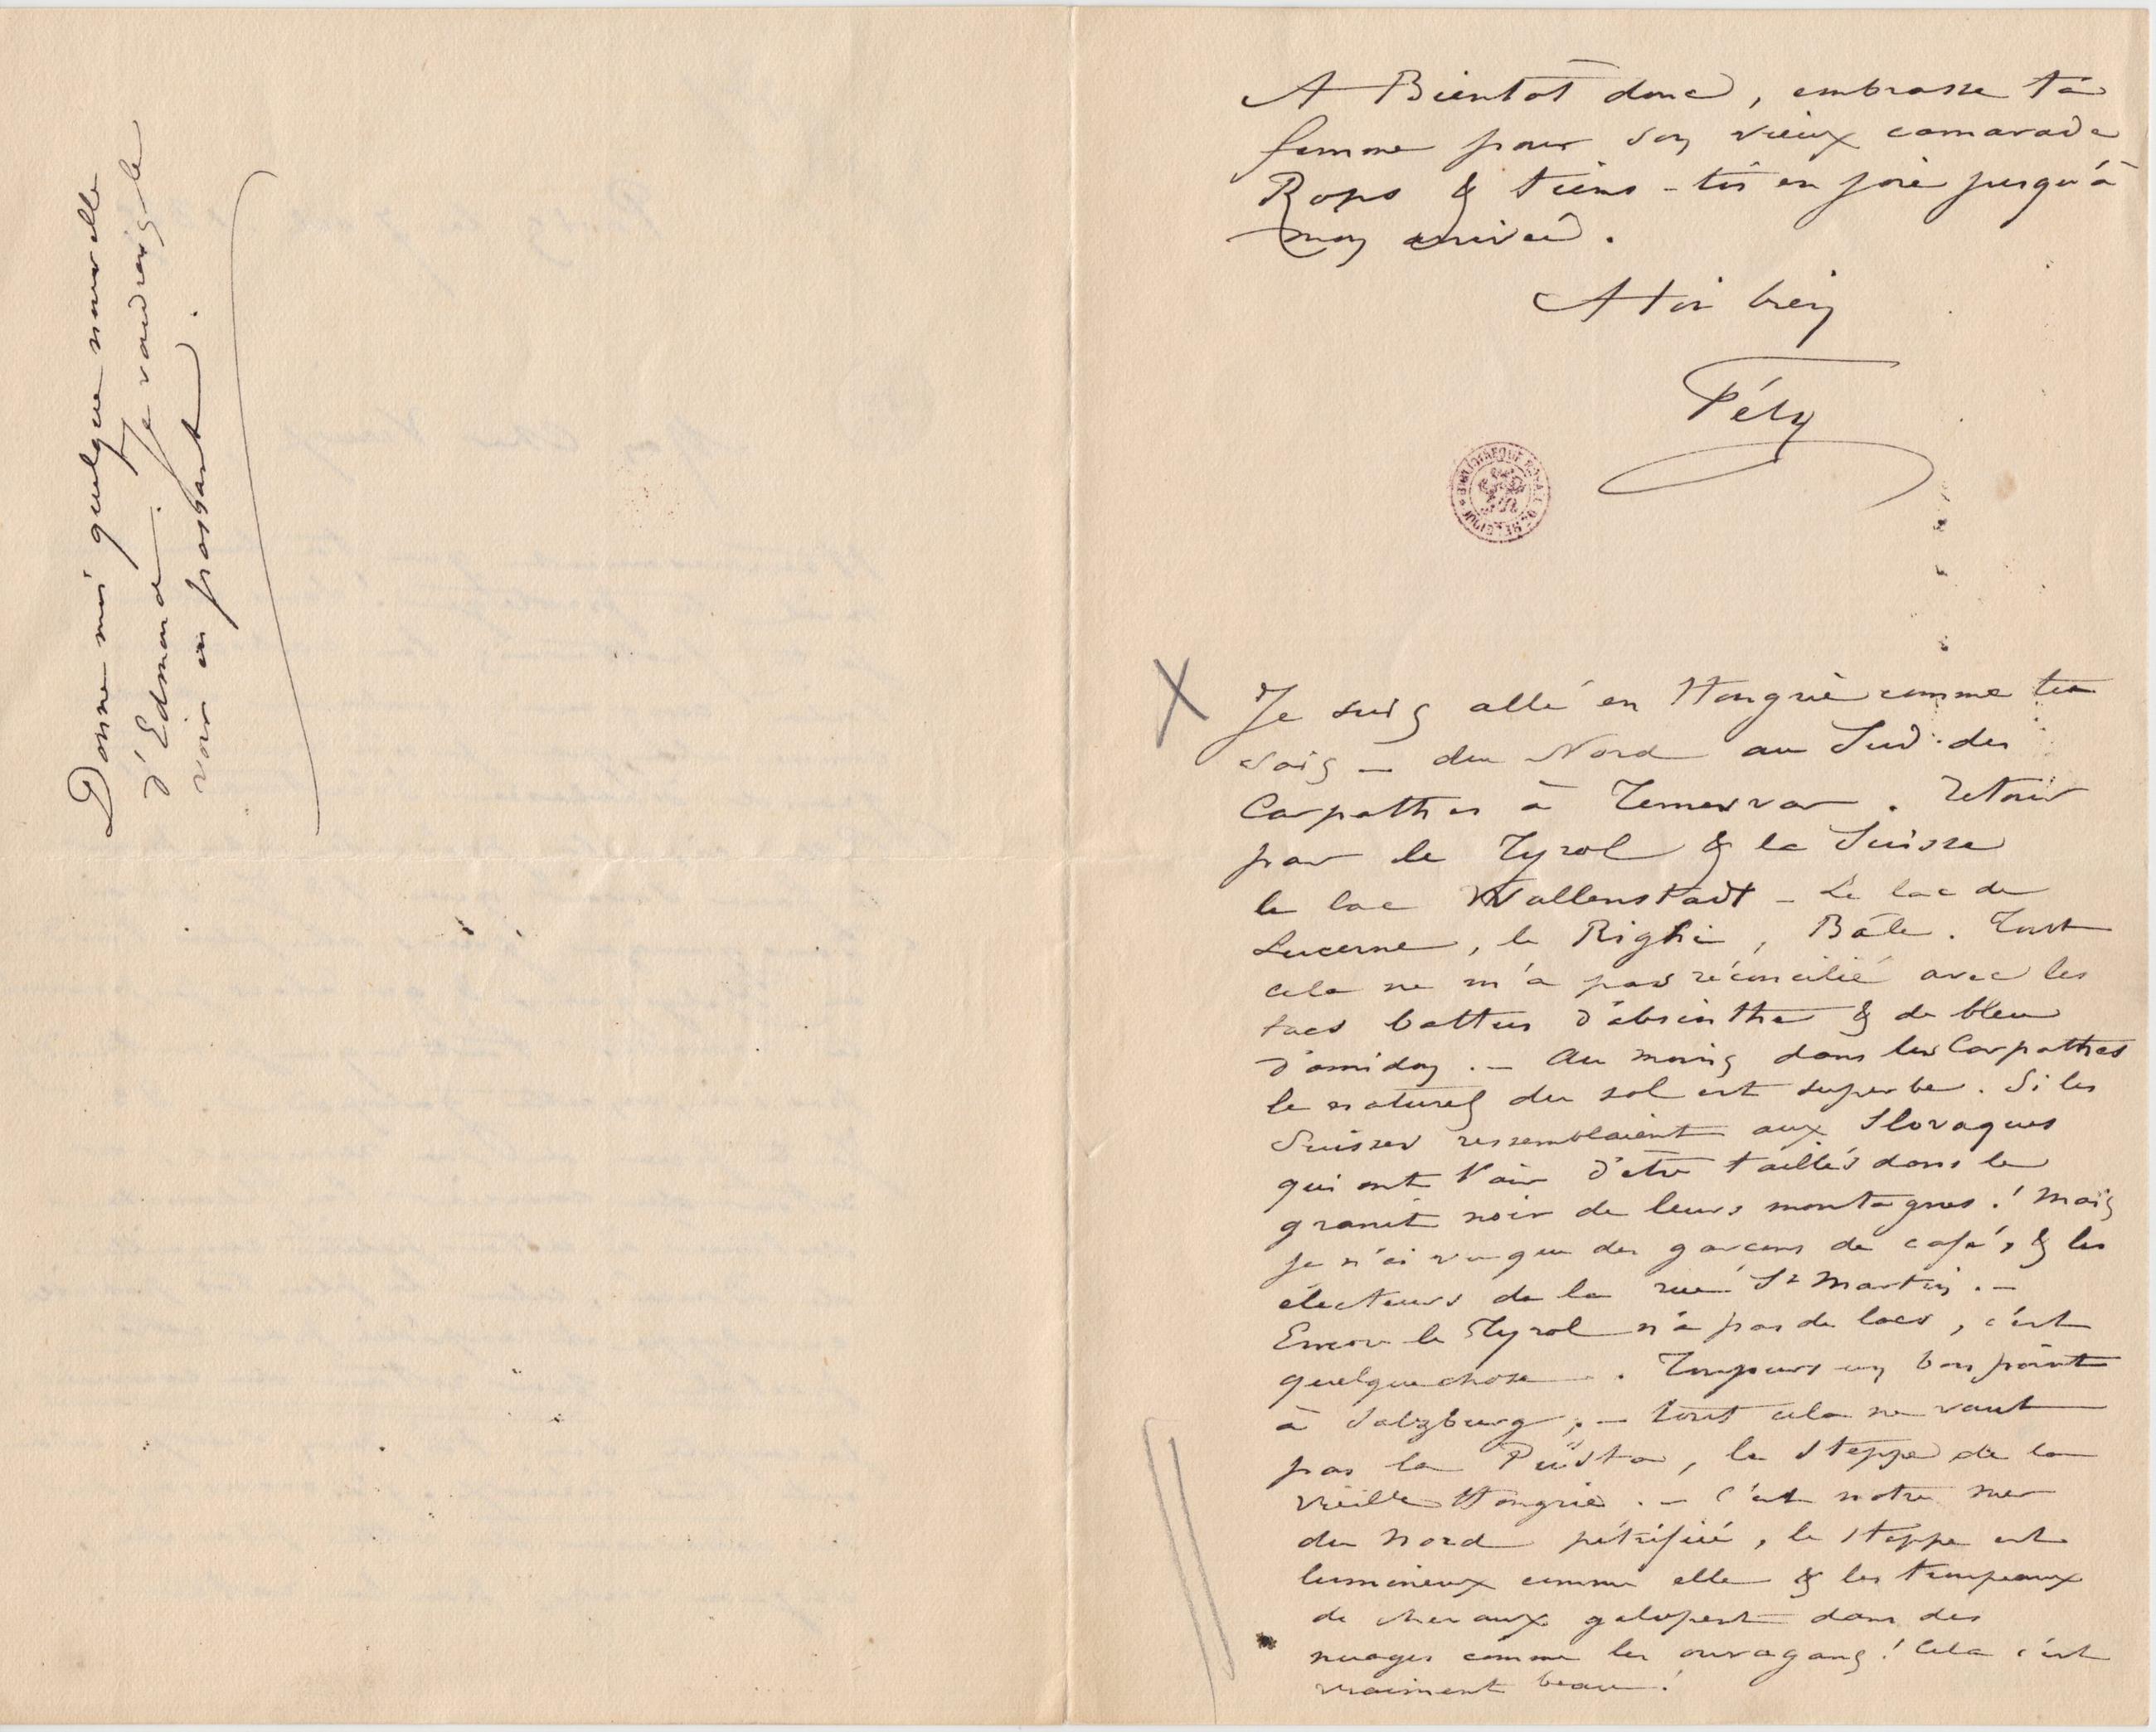 Donne moi quelque nouvelle
d'Edmond. Je voudrais le
voir en passant.
A Bientôt donc, embrasse ta
femme pour son vieux camarade
Rops & tiens-toi en joie jusqu'à
mon arrivée.
A toi bien
Fély
BIBLIOTHEQUE ROYALE DE BELGIQUE
X Je suis allé en Hongrie comme tu
sais – du Nord au Sud des
Carpathes à Temesvar. retour
par le Tyrol & la Suisse
le lac Wallenstadt – Le lac de
Lucerne, le Righi, Bâle. Tout
cela ne m'a pas réconcilié avec les
lacs battus d'absinthe & de bleu
d'amidon. – Au moins dans les Carpathes
le naturel du sol est superbe. Si les
Suisses ressemblaient aux Slovaques
qui ont l'air d'être taillés dans le
granit noir de leurs montagnes! Mais
je n'ai vu que des garçons de café, & les
électeurs de la rue St Martin. –
Encore le Tyrol n'a pas de lacs, c'est
quelque chose. Toujours un bon point
à Salzburg; – tout cela ne vaut
pas la Püsta, le steppe de la
vieille Hongrie. – C'est notre mer
du Nord pétrifiée, le steppe est
lumineux comme elle & les troupeaux
de chevaux galopent dans des
nuages comme les ouragans! Cela c'est
vraiment beau!